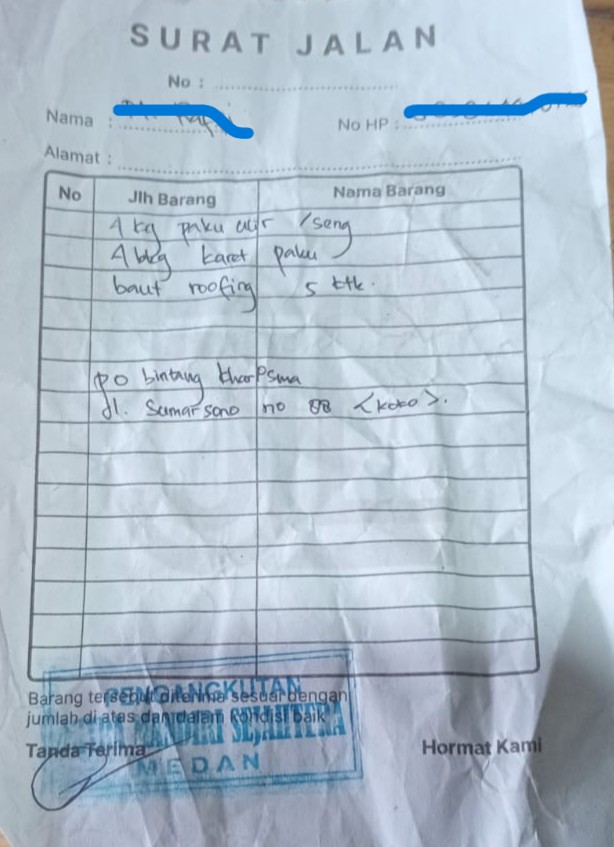 SURAT JALAN
No :
Nama :
No HP :
Alamat :
No Jlh Barang Nama Barang
1 kg paku ulir /seng
1 bkg karet paku
baut roofing 5 ktk.
po bintang kharisma
Jl. Sumarsono no 88 <koko>.
Barang tersebut diterima sesuai dengan
jumlah di atas dan dalam kondisi baik
PENGANGKUTAN
SEJAHTERA
MEDAN
Tanda Terima
Hormat Kami